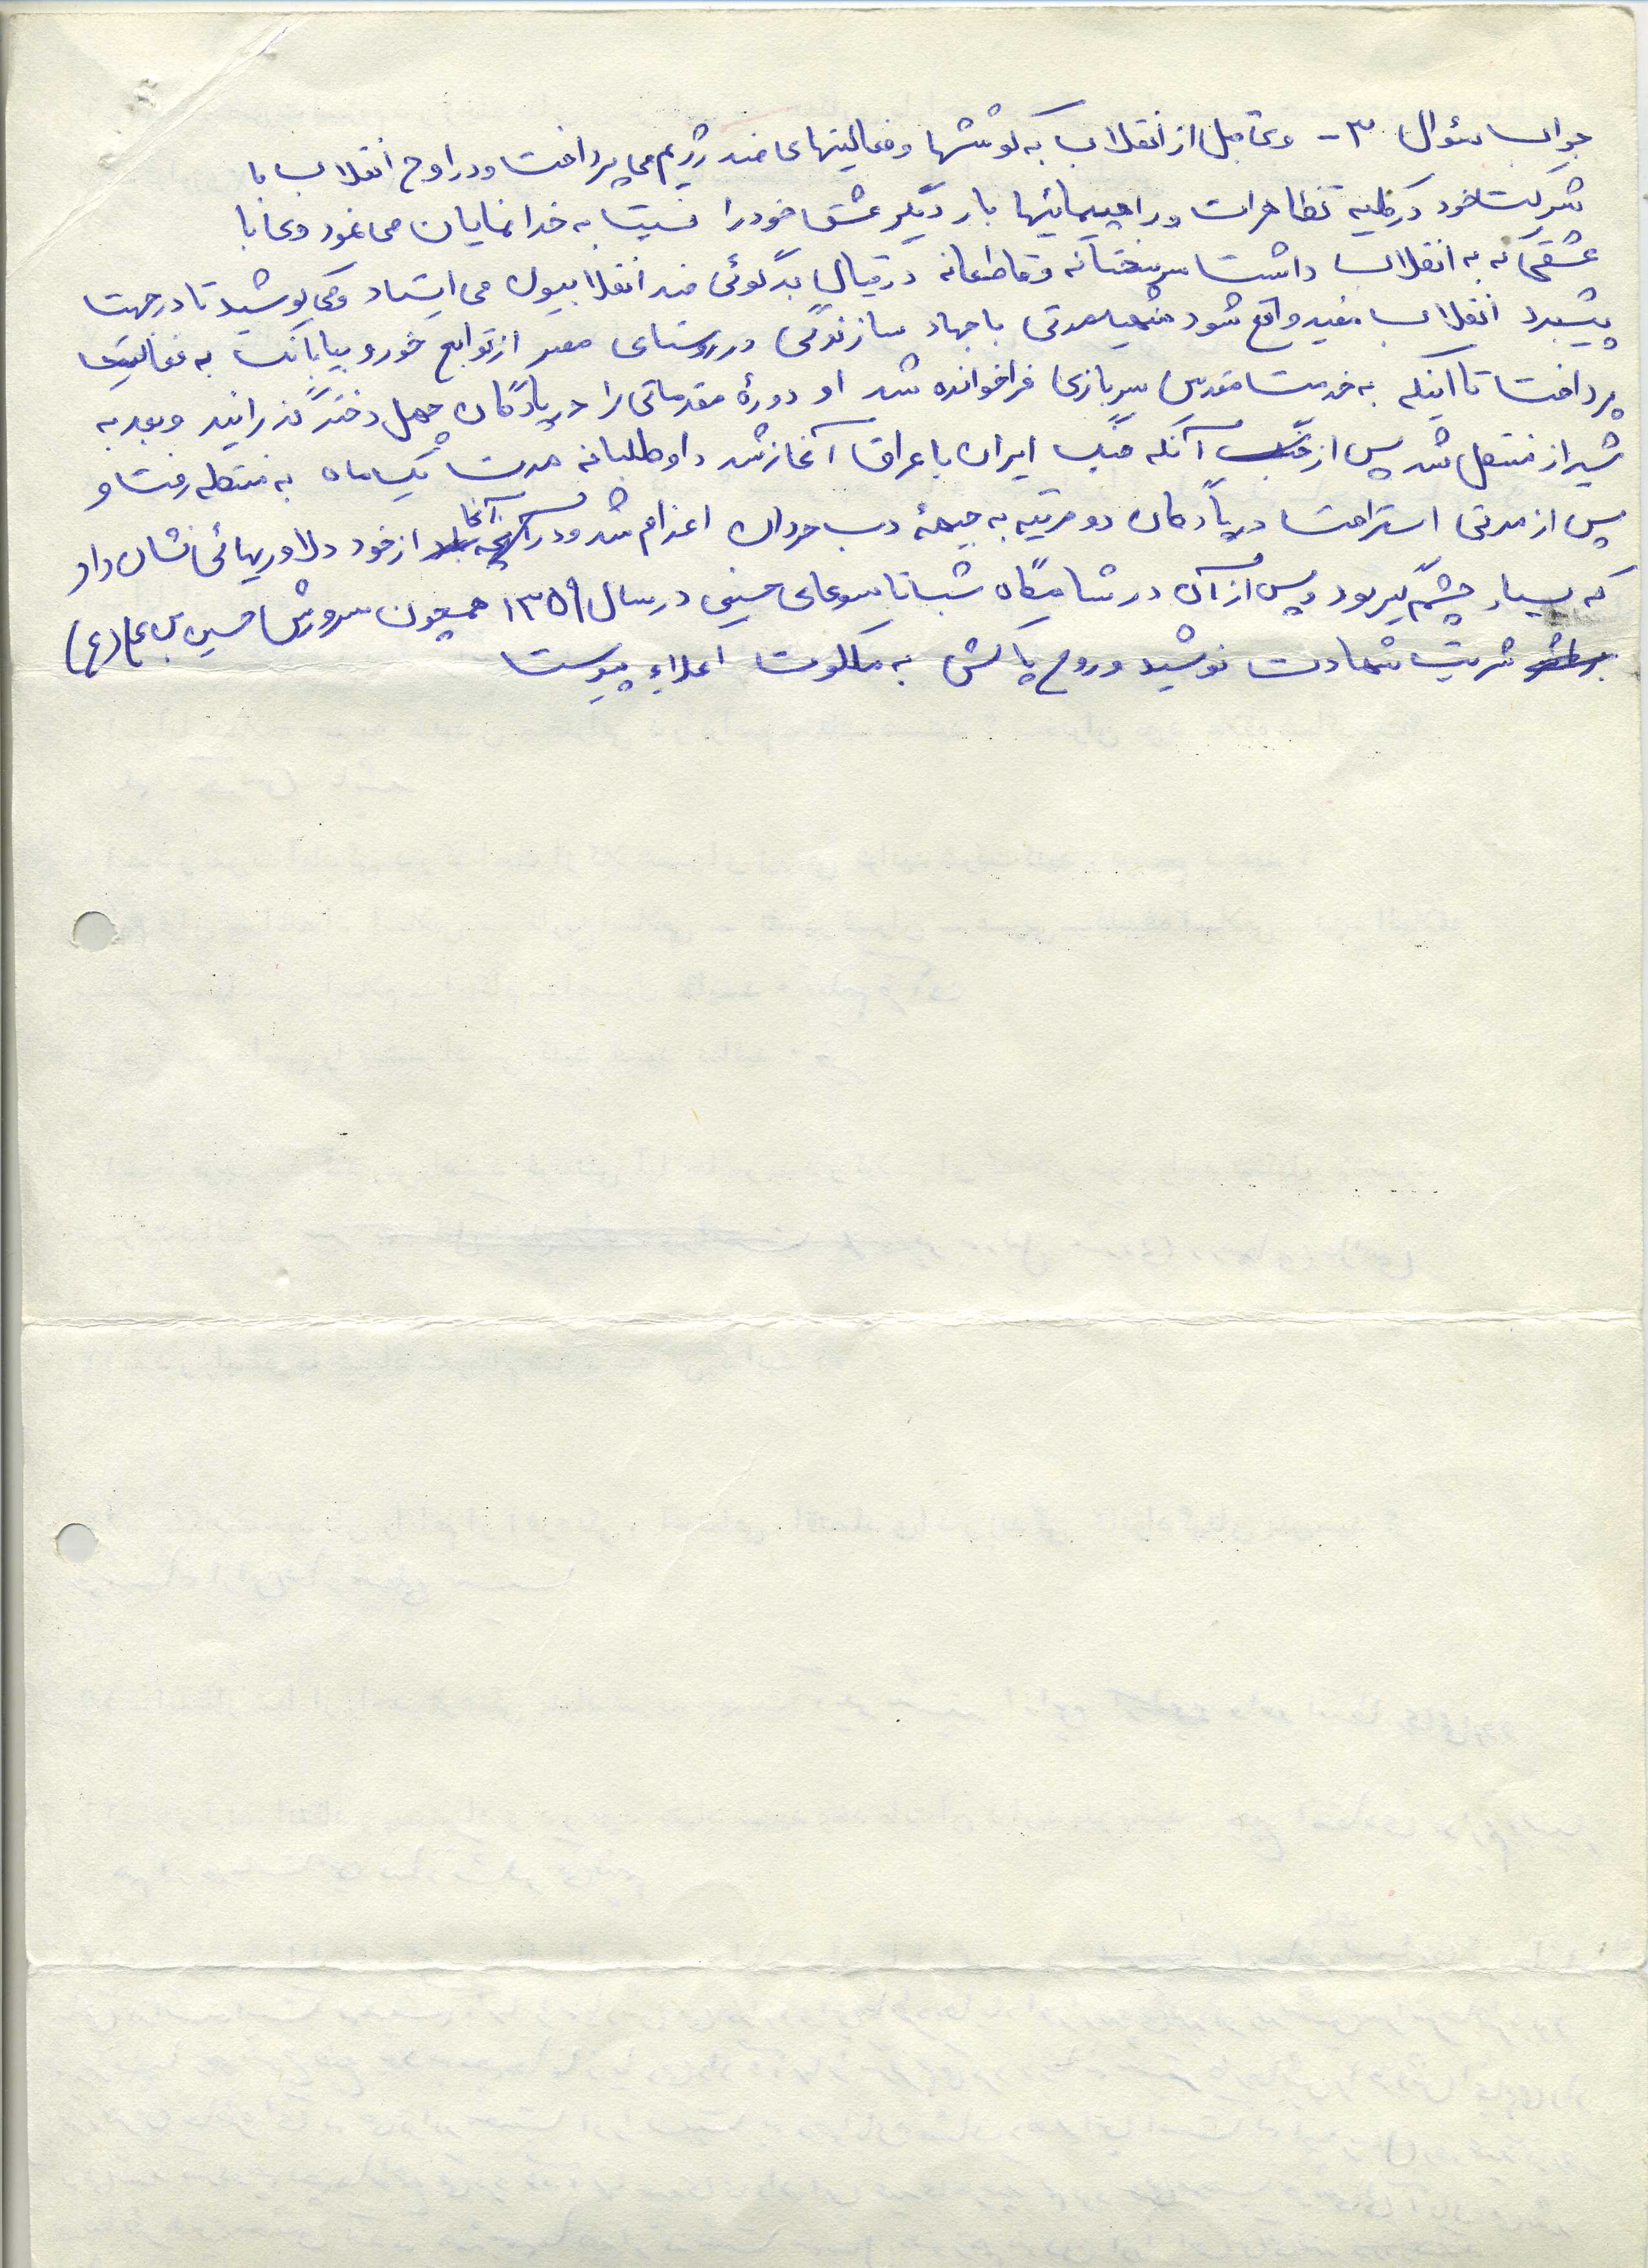 جواب سئوال ۳- وی قبل از انقلاب به کوششها و فعالیتهای ضد رژیم می پرداخت و در اوج انقلاب با
شرکت خود در کلیه تظاهرات و راهپیمائیها بار دیگر عشق خود را نسبت به خدا نمایان می نمود وی با
عشقی که به انقلاب داشت سرسختانه و قاطعانه در قبال بدگوئی ضد انقلابیون می ایستاد و می کوشید تا در جهت
پیشبرد انقلاب مفید واقع شود شهید مدتی با جهاد سازندگی در روستای مصر از توابع خور و بیابانک به فعالیت
پرداخت تا اینکه به خدمت مقدس سربازی فراخوانده شد او دورهٔ مقدماتی را در پادگان چهل دختر گذرانید و بعد به
شیراز منتقل شد پس از آنکه جنگ ایران با عراق آغاز شد داوطلبانه مدت یک ماه به منطقه رفت و
پس از مدتی استراحت در پادگان دو مرتبه به جبههٔ دب حردان اعزام شد و در آنجا از خود دلاوریهائی نشان داد
که بسیار چشم گیر بود و پس از آن در شامگاه شب تاسوعای حسینی در سال ۱۳۵۹ همچون سرورش حسین بن علی (ع)
شربت شهادت نوشید و روح پاکش به ملکوت اعلاء پیوست